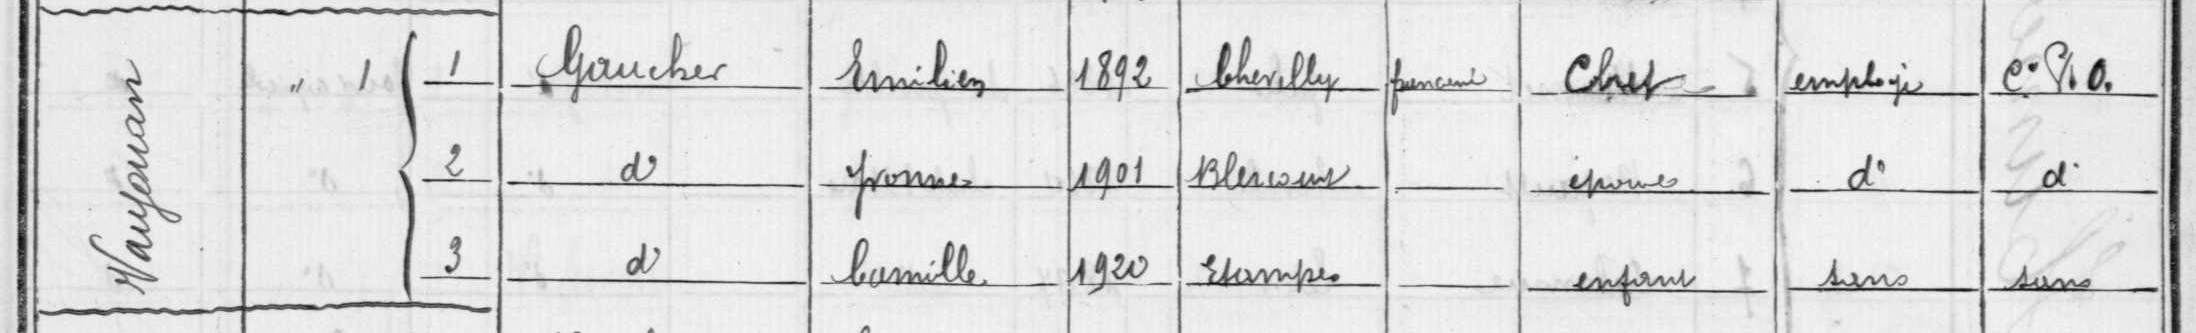 Vaujouan " 1 1 Gaucher Emilien 1892 Chevilly française Chef employé Cie P. O.
2 d° Yvonne 1901 Blercourt épouse d° d°
3 d° Camille 1920 Etampes enfant sans sans